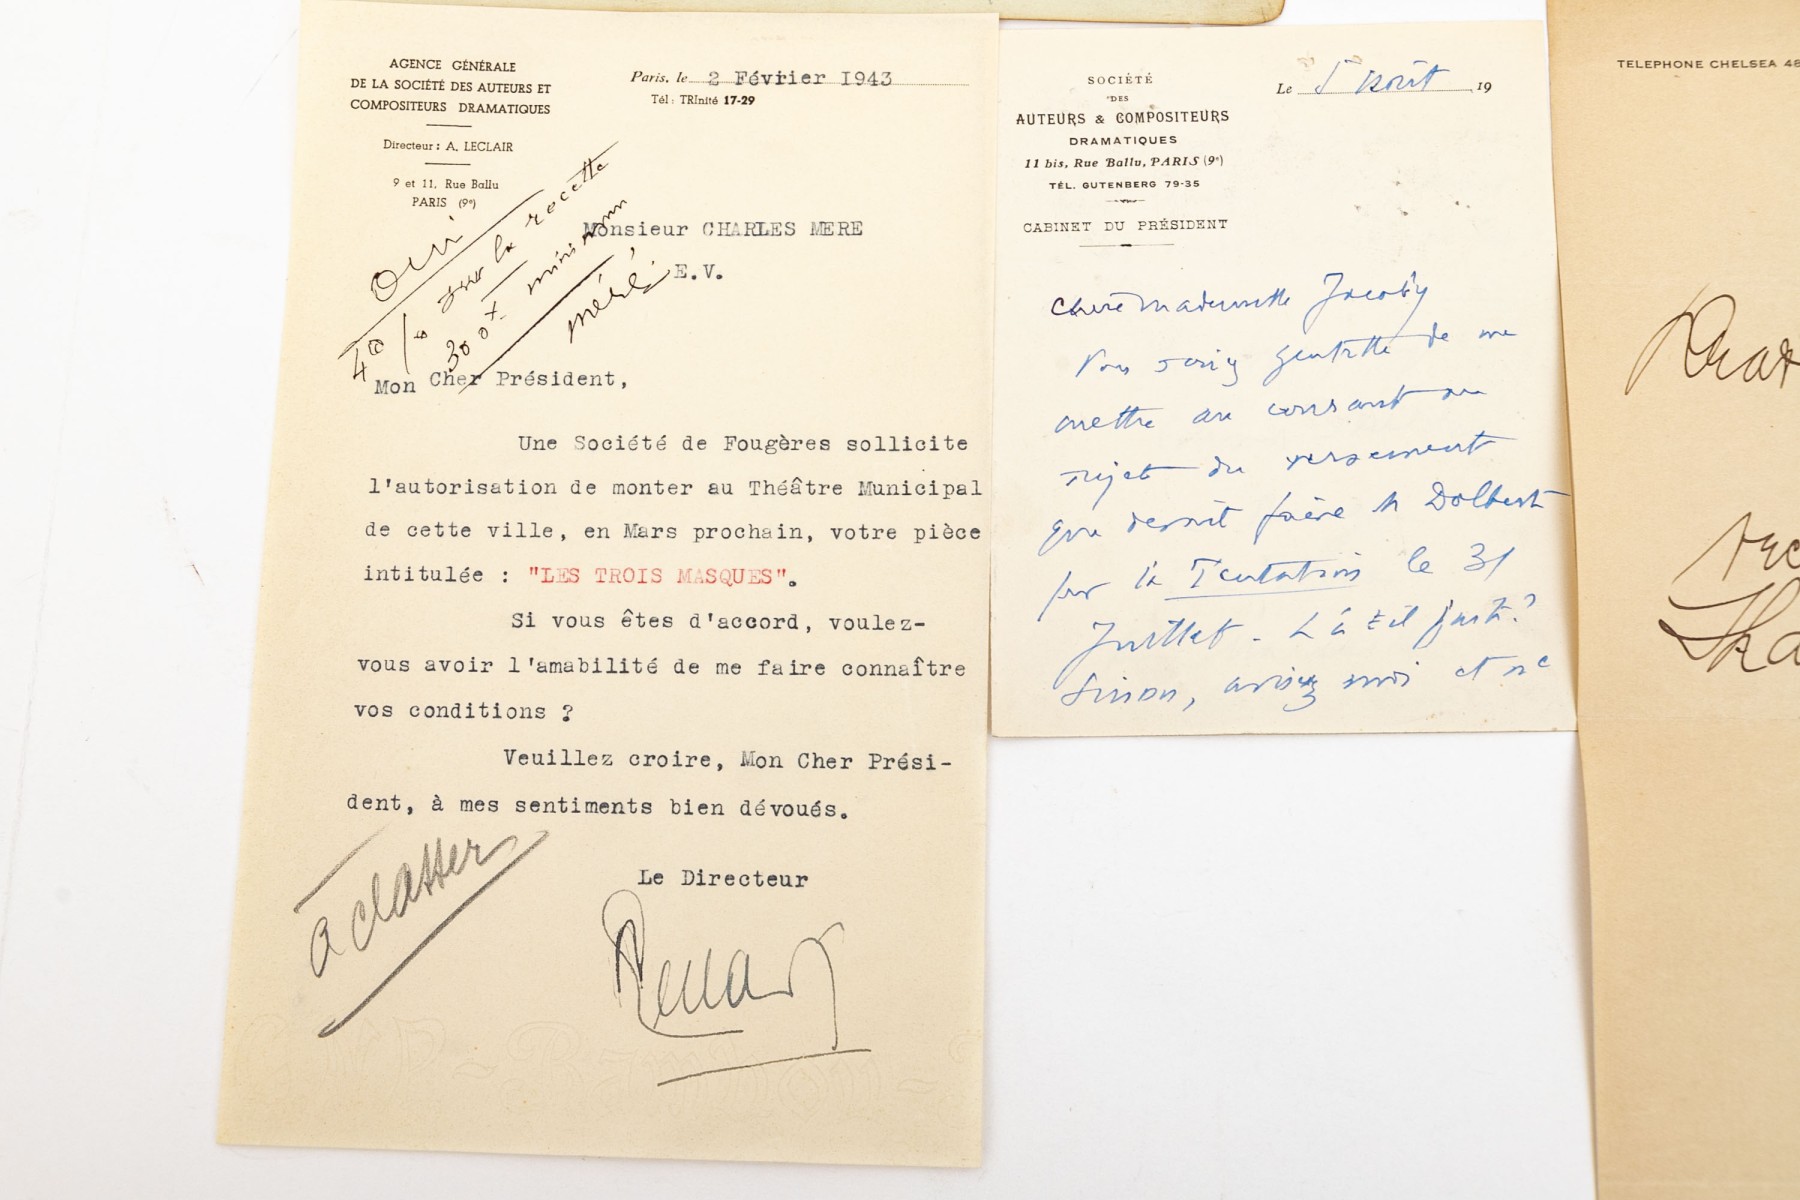 AGENCE GÉNÉRALE
DE LA SOCIÉTÉ DES AUTEURS ET
COMPOSITEURS DRAMATIQUES
Directeur : A. LECLAIR
9 et 11, Rue Ballu
PARIS (9e)
Paris, le 2 Février 1943
Tél : TRInité 17-29
Oui
sur la recette
Méré
Monsieur CHARLES MERE
E.V.
Mon Cher Président,
Une Société de Fougères sollicite
l'autorisation de monter au Théâtre Municipal
de cette ville, en Mars prochain, votre pièce
intitulée : "LES TROIS MASQUES".
Si vous êtes d'accord, voulez-
vous avoir l'amabilité de me faire connaître
vos conditions ?
Veuillez croire, Mon Cher Prési-
dent, à mes sentiments bien dévoués.
à classer
Le Directeur
SOCIÉTÉ
DES
AUTEURS & COMPOSITEURS
DRAMATIQUES
11 bis, Rue Ballu, PARIS (9e)
TÉL. GUTENBERG 79-35
CABINET DU PRÉSIDENT
Le 5 Août 19
Chère Mademoiselle Jacoby
Vous seriez gentille de me
mettre au courant au
sujet du versement
que devait faire M Dolbert
pour la Tentation le 31
Juillet. L'a t il fait ?
Sinon, avisez moi et ne
TELEPHONE CHELSEA 48